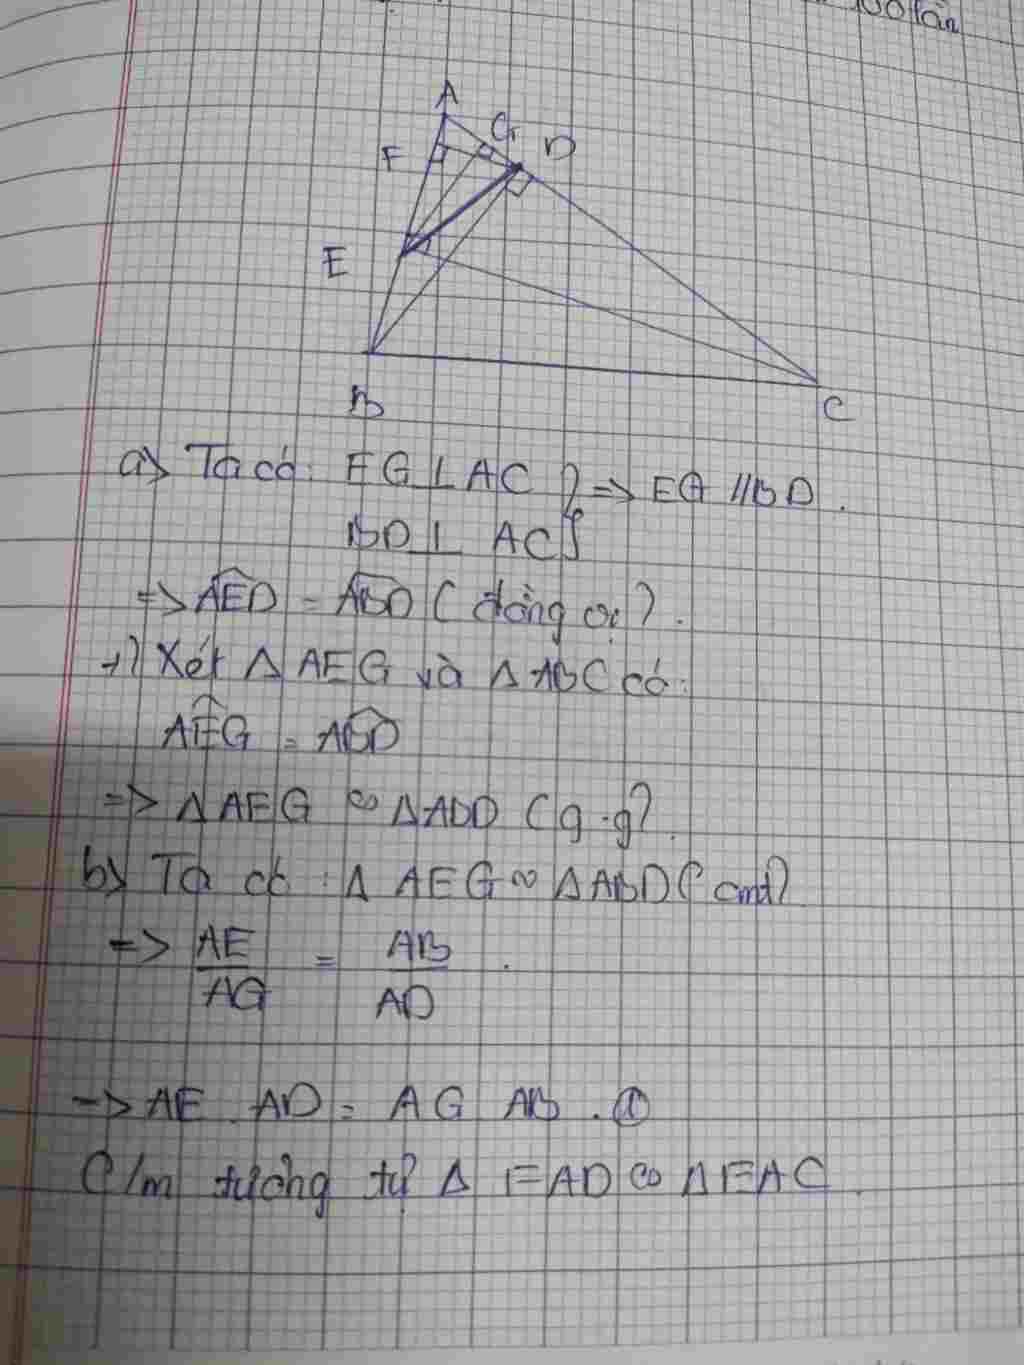 100 lần
A
G
D
F
E
B
C
a) Ta có: EG ⊥ AC } => EG // BD.
BD ⊥ AC
=> AED = ABD (đồng vị).
+) Xét Δ AEG và Δ ABC có:
AEG = ABD
=> Δ AEG ∽ Δ ADD (g.g).
b) Ta có: Δ AEG ∽ Δ ABD (cmt)
=> AE/AG = AB/AD.
-> AE . AD = AG . AB . ①
C/m tương tự Δ FAD ∽ Δ EAC.